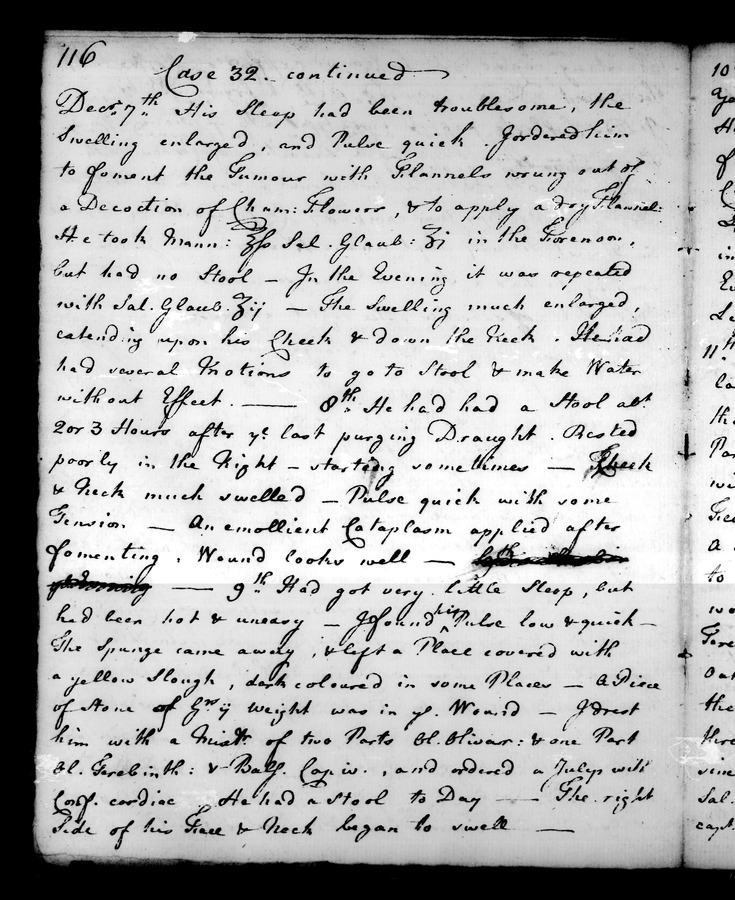 116
Case 32. continued
Decr. 7th. His Sleep had been troublesome, the
Swelling enlarged, and Pulse quick. I ordered him
to foment the Tumour with Flannels wrung out of
a Decoction of Cham: Flowers, & to apply a dry Flannel.
He took Mann: ℥ſs Sal. Glaub: ʒj in the Forenoon,
but had no Stool — In the Evening it was repeated
with Sal. Glaub. ʒij — The Swelling much enlarged,
extending upon his Cheek & down the Neck. He had
had several Motions to go to Stool & make Water
without Effect. — 8th. He had had a Stool abt.
2 or 3 Hours after ye. last purging Draught. Rested
poorly in the Night — starting sometimes — Cheek
& Neck much swelled — Pulse quick with some
Tension — An emollient Cataplasm applied after
fomenting. Wound looks well —
— 9th. Had got very little Sleep, but
had been hot & uneasy — I found his Pulse low & quick —
The Spunge came away, & left a Place covered with
a yellow Slough, dark coloured in some Places — A Piece
of Stone of Grs ij Weight was in ye. Wound — I drest
him with a Mixtr. of two Parts Ol. Olivar: & one Part
Ol. Terebinth: & Balſ. Capiv., and ordered a Julep with
Conf. cardiac He had a Stool to Day — The right
Side of his Face & Neck began to swell —
10
11th